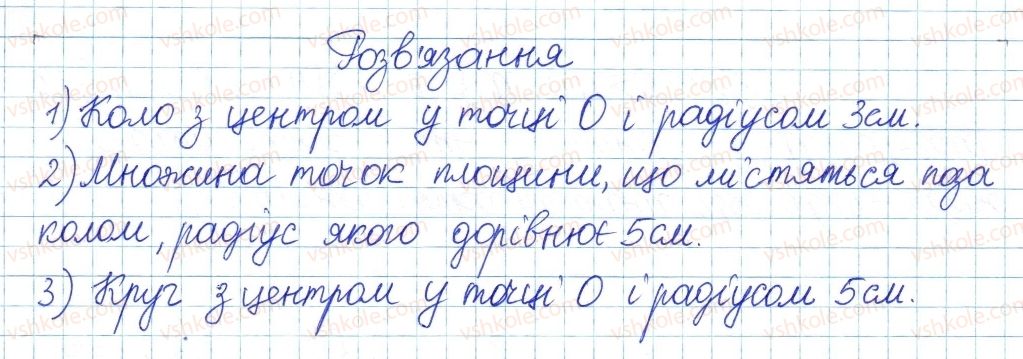 Розв'язання
1) Коло з центром у точці О і радіусом 3 см.
2) Множина точок площини, що містяться поза
колом, радіус якого дорівнює 5 см.
3) Круг з центром у точці О і радіусом 5 см.